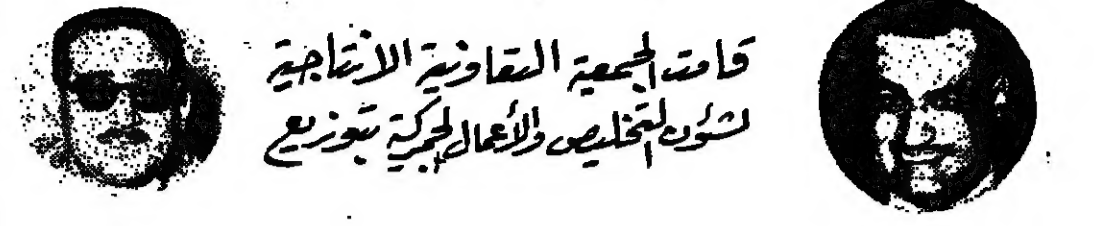 قامت الجمعية التعاونية الانتاجية
لشؤون التخليص والأعمال الجمركية بتوزيع